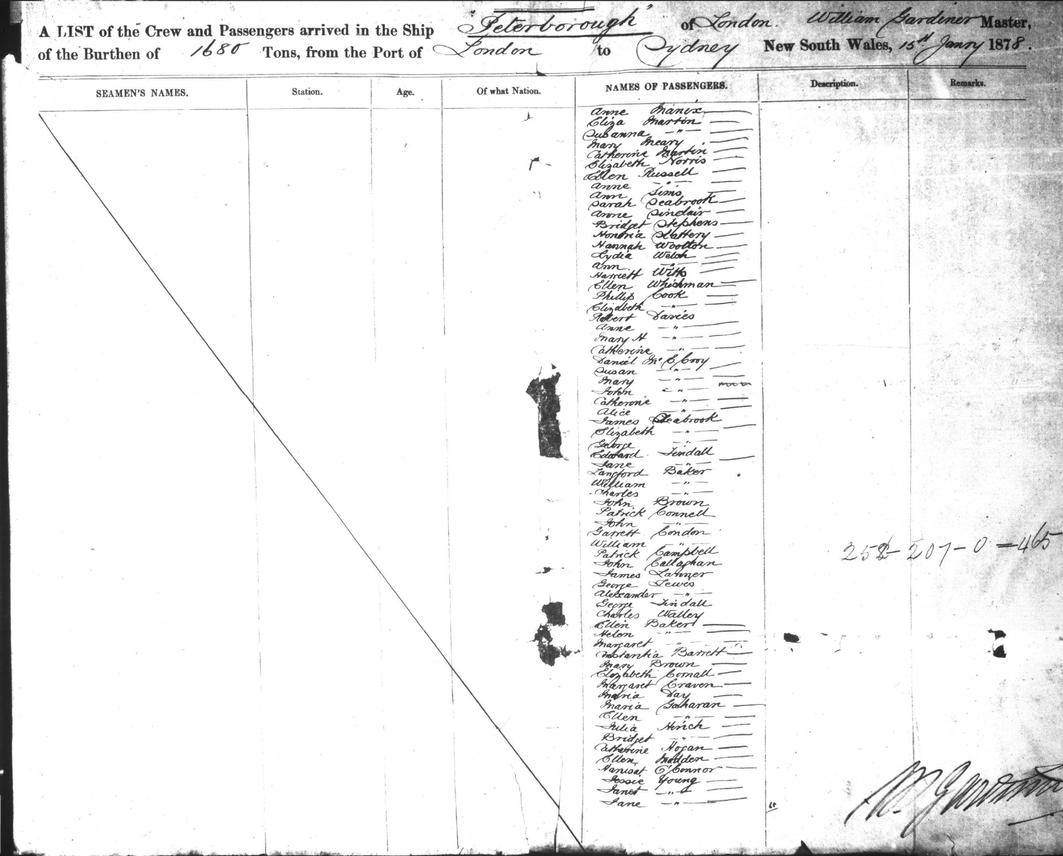 A LIST of the Crew and Passengers arrived in the Ship "Peterborough" of London. William Gardiner Master,
of the Burthen of 1680 Tons, from the Port of London to Sydney New South Wales, 15th Janry 1878.
SEAMEN'S NAMES. Station. Age. Of what Nation. NAMES OF PASSENGERS. Description. Remarks.
Anne Manix
Eliza Martin
Susanna "
Mary Meary
Catherine Martin
Elizabeth Norris
Ellen Russell
Anne "
Ann Sims
Sarah Seabrook
Anne Sinclair
Bridget Stephens
Honoria Slattery
Hannah Wootton
Lydia Welch
Ann
Harriett Witts
Ellen Whichman
Phillip Cook
Elizabeth "
Robert Davies
Anne "
Mary H "
Catherine "
Daniel McElroy
Susan "
Mary "
John "
Catherine "
Alice "
James Seabrook
Elizabeth "
George "
Edward Tindall
Jane "
Langford Baker
William "
Charles "
John Brown
Patrick Connell
John "
Garrett Condon
William "
Patrick Campbell
John Callaghan
James Latimer
George Lewis
Alexander "
George Tindall
Charles Walley
Ellen Baker
Helen "
Margaret "
Constantia Barrett
Mary Brown
Elizabeth Cornall
Margaret Craven
Maria Day
Maria
Ellen "
Julia Hinch
Bridget "
Catherine Hogan
Ellen Madden
O'Connor
Jessie Young
Janet "
Jane "
258-207-0=465
W Gardiner